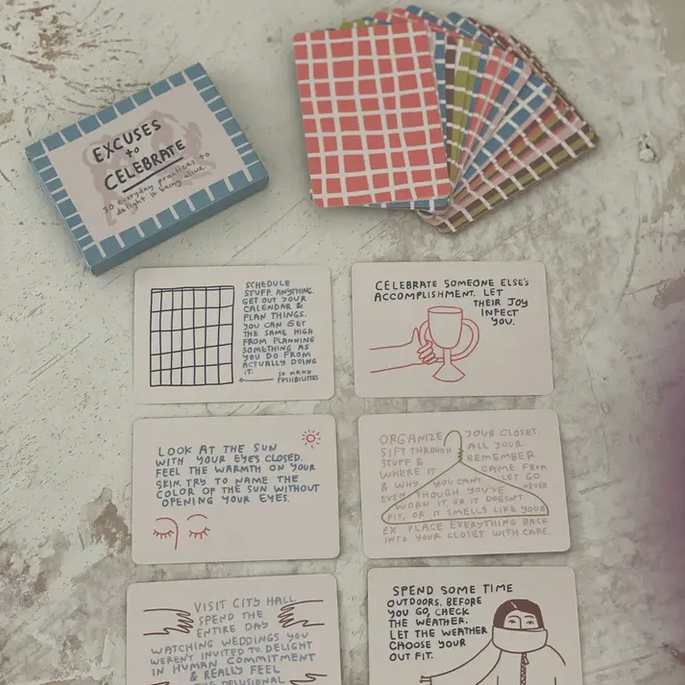 EXCUSES
to
CELEBRATE
30 everyday practices to
delight in being alive.
SCHEDULE
STUFF. ANYTHING.
GET OUT YOUR
CALENDAR &
PLAN THINGS.
YOU CAN GET
THE SAME HIGH
FROM PLANNING
SOMETHING AS
YOU DO FROM
ACTUALLY DOING
IT.
SO MANY
POSSIBILITIES
CELEBRATE SOMEONE ELSE'S
ACCOMPLISHMENT. LET
THEIR JOY
INFECT
YOU.
LOOK AT THE SUN
WITH YOUR EYES CLOSED.
FEEL THE WARMTH ON YOUR
SKIN. TRY TO NAME THE
COLOR OF THE SUN WITHOUT
OPENING YOUR EYES.
ORGANIZE YOUR CLOSET.
SIFT THROUGH ALL YOUR
STUFF & REMEMBER
WHERE IT CAME FROM
& WHY YOU CAN'T LET GO
EVEN THOUGH YOU'VE NEVER
WORN IT, OR IT DOESN'T
FIT, OR IT SMELLS LIKE YOUR
EX. PLACE EVERYTHING BACK
INTO YOUR CLOSET WITH CARE.
VISIT CITY HALL
SPEND THE
ENTIRE DAY
WATCHING WEDDINGS YOU
WEREN'T INVITED TO. DELIGHT
IN HUMAN COMMITMENT
& REALLY FEEL
THE DELUSIONAL
SPEND SOME TIME
OUTDOORS. BEFORE
YOU GO, CHECK
THE WEATHER.
LET THE WEATHER
CHOOSE YOUR
OUT FIT.